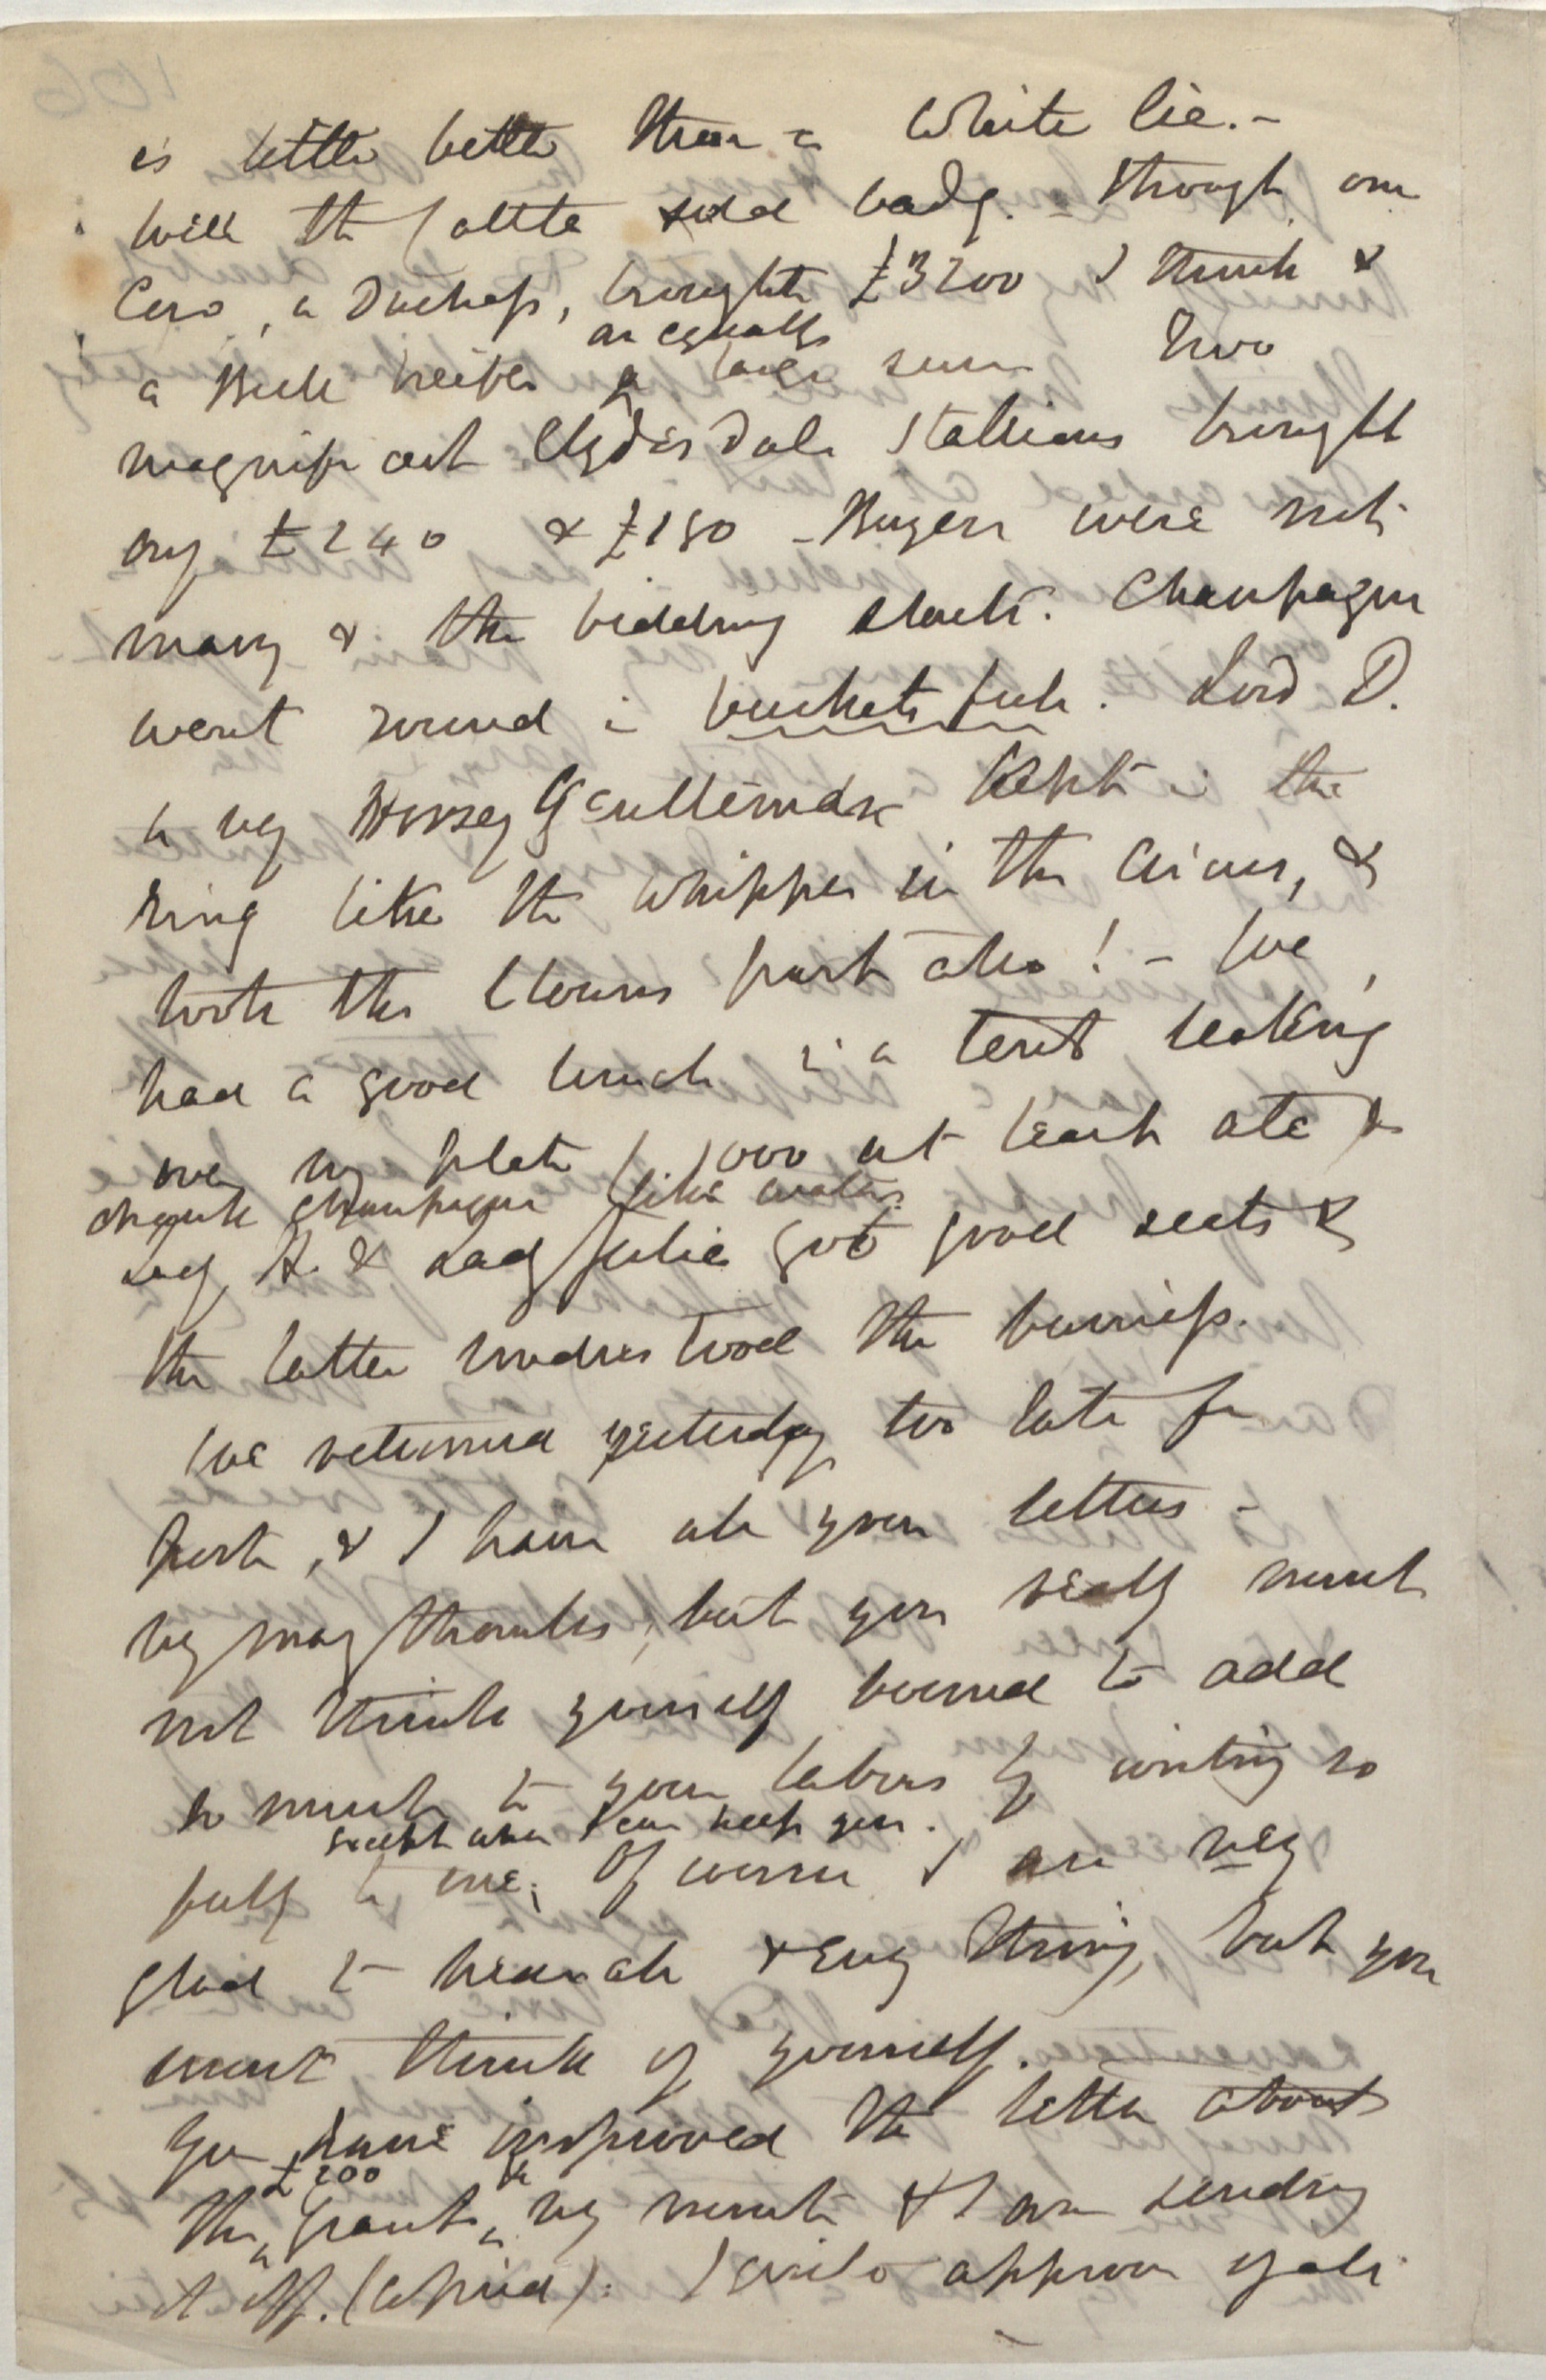 is little better than a white lie. –
Well the Cattle sold badly. – though one
Cow, a Duchess, brought £3200 I think &
a Bull heifer an equally large sum Two
magnificent Clydesdale Stallions brought
only £240 & £180 – Buyers were not
many & the bidding slack. Champagne
went round in buckets full. Lord D.
a very Horsey Gentleman kept in the
ring like the whipper in the Circus, &
took the Clowns part also! – We
had a good lunch in a tent leaking
over my plate, 1000 at least ate &
drank champagne like water.
Lady H. & Lady Julia got good seats &
the latter understood the business.
We returned yesterday too late for
post, & I have all your letters –
very many thanks, but you really must
not think yourself bound to add
so much to your labors by writing so
fully to me, except when I can help you. Of course I am very
glad to hear all & every thing, but you
must think of yourself.
You have improved the letter about
the £200 Grant very much & I am sending
it off. (copied). I quite approve of all